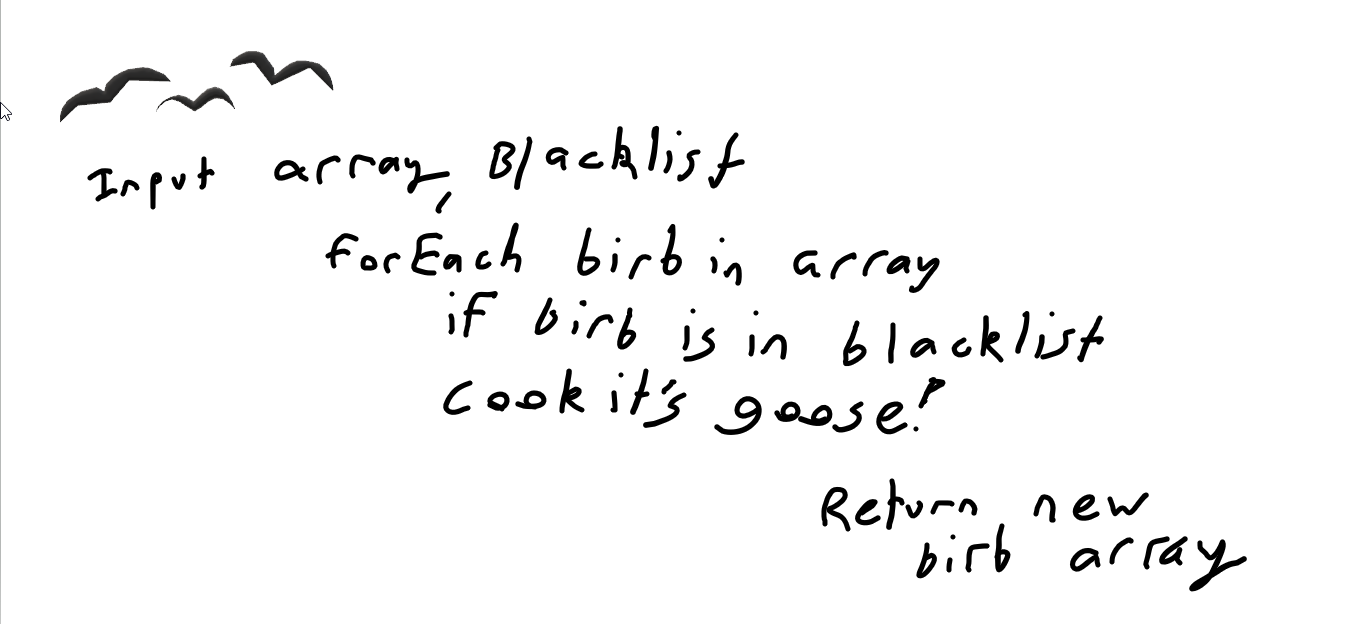 Input array, Blacklist
forEach birb in array
if birb is in blacklist
cook it's goose!
Return new
birb array